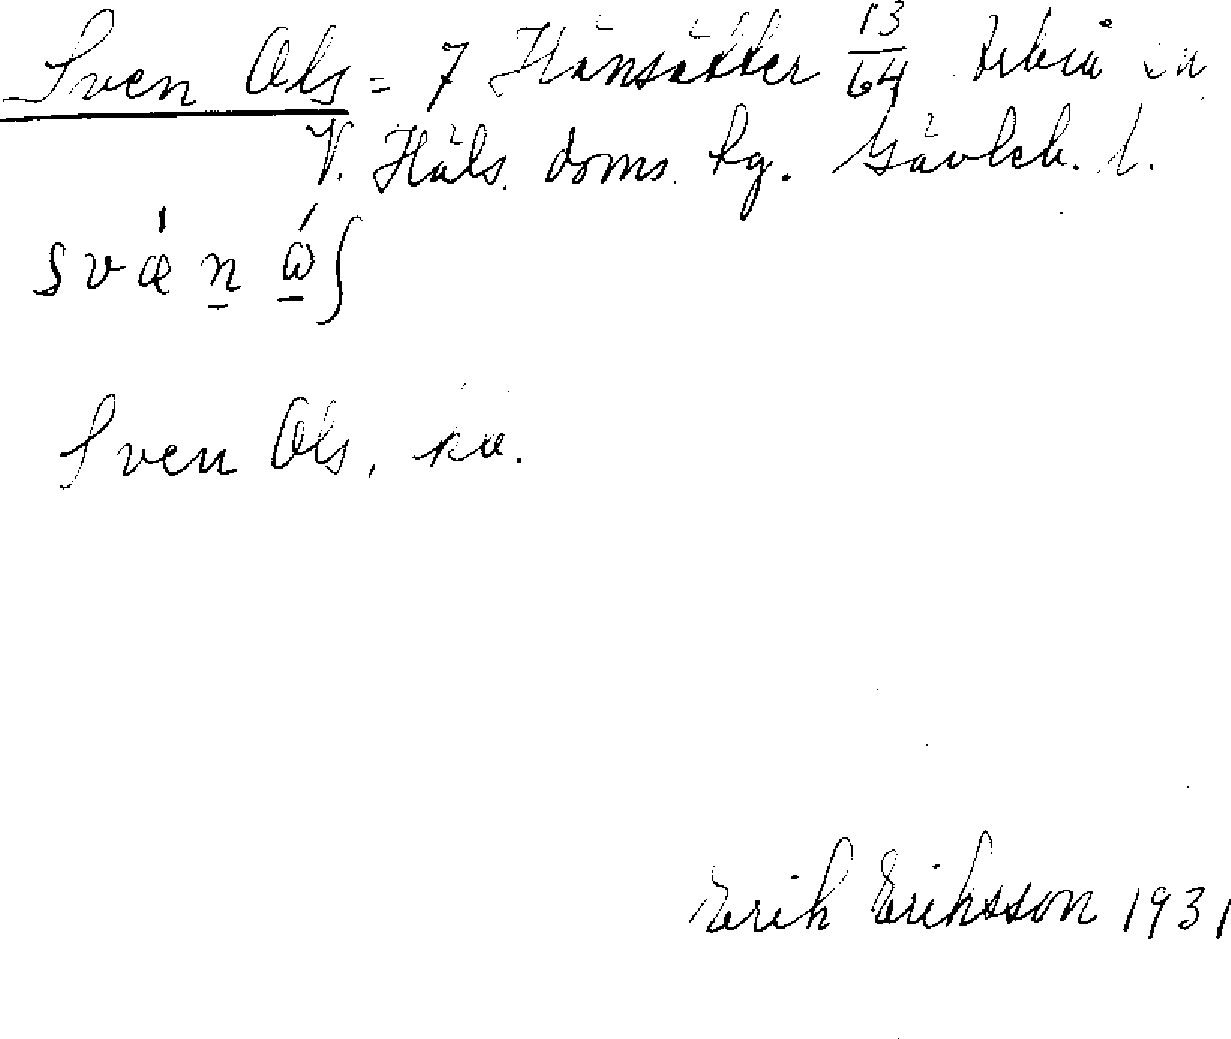 Sven Ols = 7 Hänsätter 13/64 Arbrå sn
V. Häls. doms. hg. Gävleb. l.
sváen ǻʃ
Sven Ols,
Erik Eriksson 1931